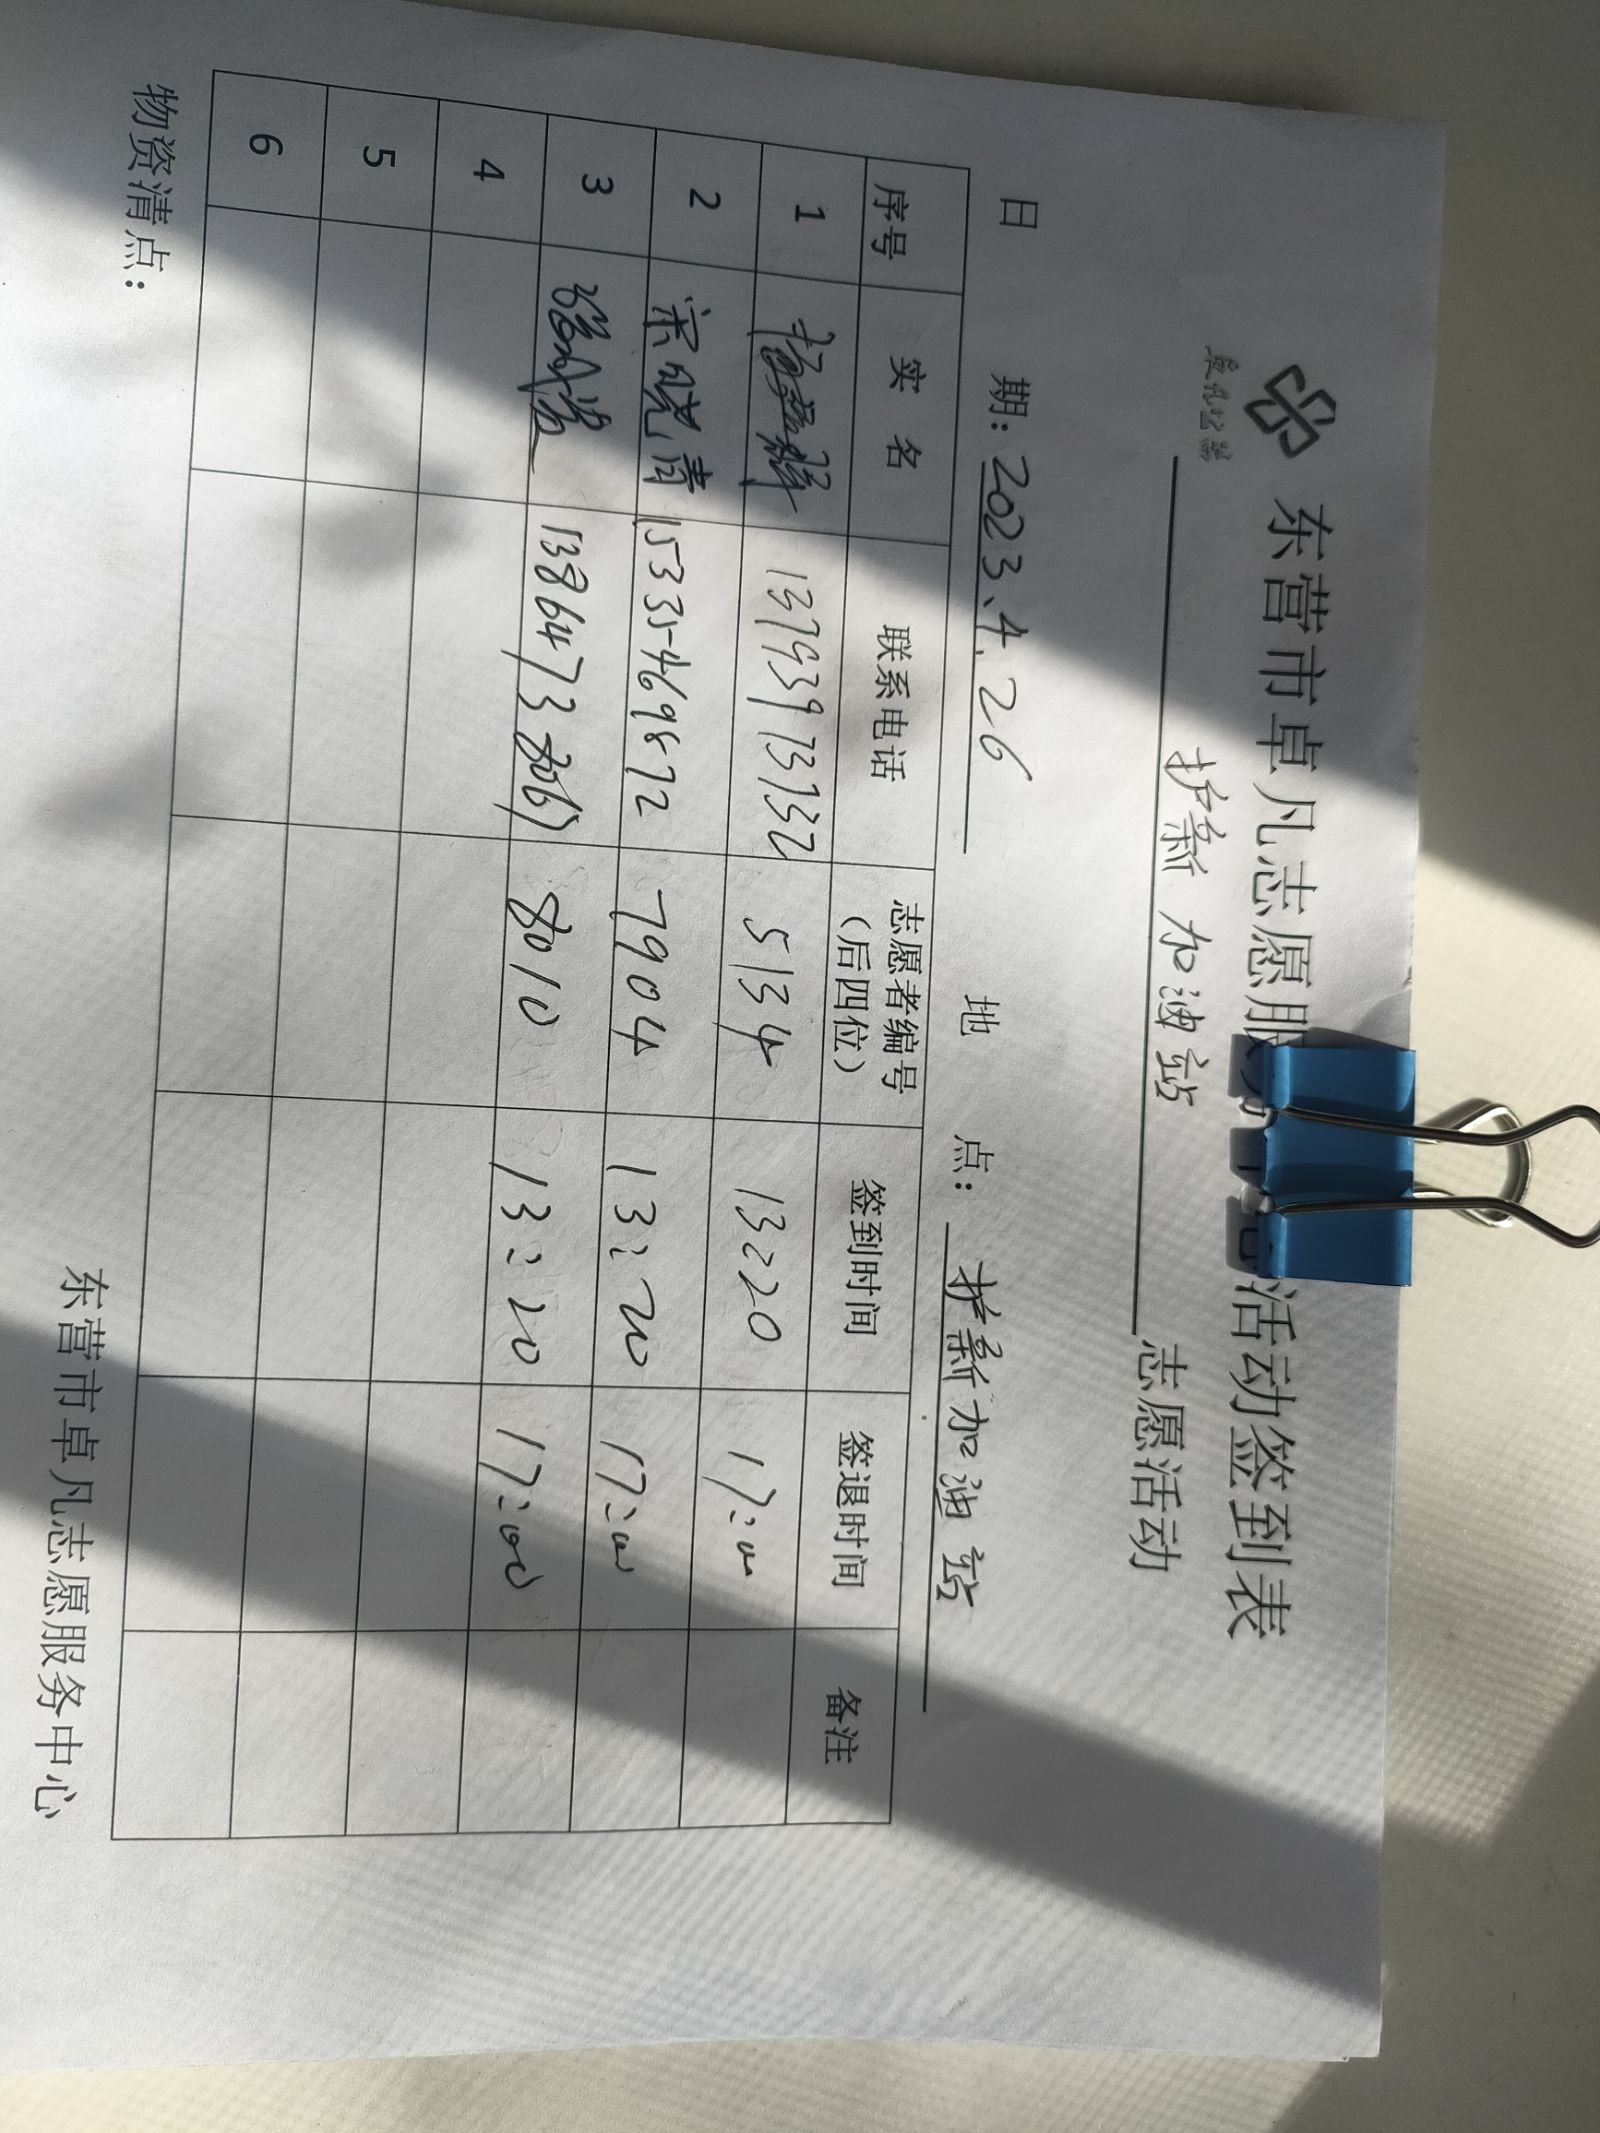 东营市卓凡志愿服务 活动签到表
卓凡公益
护新加油站 志愿活动
日 期: 2023.4.26 地 点: 护新加油站
序号 实 名 联系电话 志愿者编号(后四位) 签到时间 签退时间 备注
1 5134 13:20 17:00
2 宋晓清 15335469872 7904 13:20 17:00
3 8010 13:20 17:00
4
5
6
物资清点:
东营市卓凡志愿服务中心